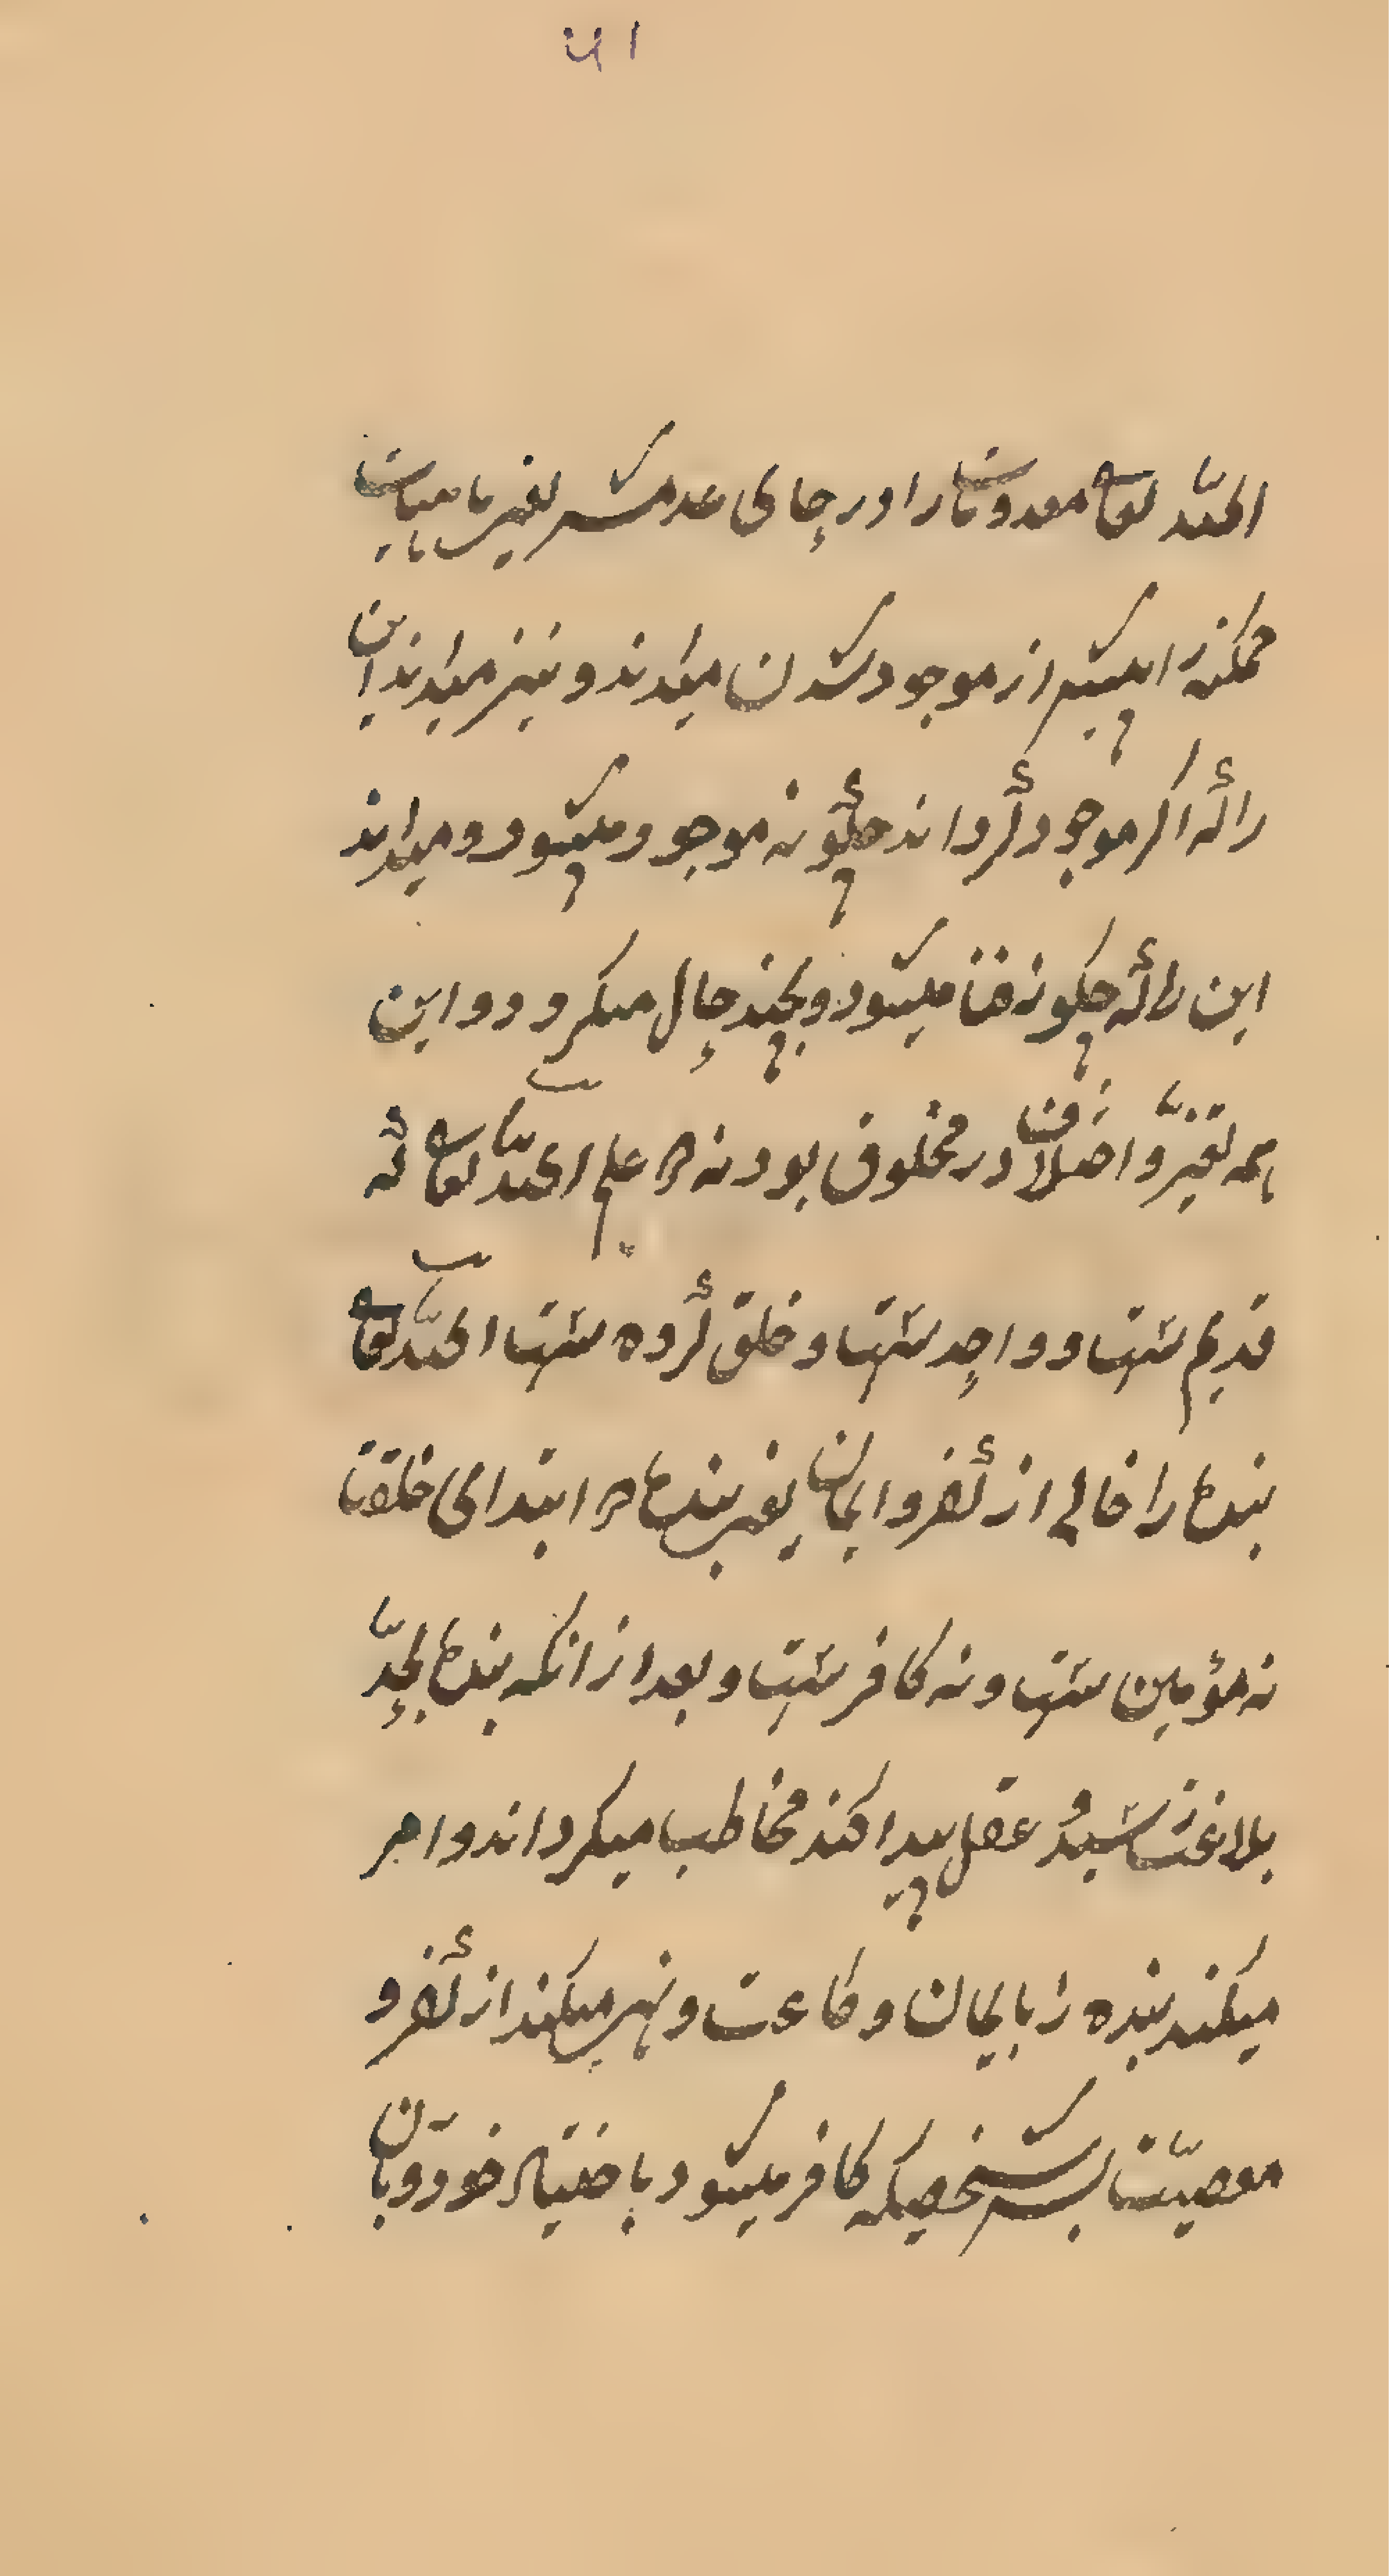 ۵۱
الحیّد تعالی معدومات را در حالی عدمش یعنی ماهیات
ممکنه را پیش از موجود شدن میداند و نیز میداند این
را که اگر موجود کرداند چکونه موجود میشود و میداند
این را که چکونه فنا میشود و بچند حال میکردد و این
همه تغیّر و اختلاف در مخلوق بود نه در علم الحیّد تعالی که
قدیم ست و واحد ست و خلق کرده ست الحیّد تعالی
بندها را خالی از کفر و ایمان یعنی بندها در ابتدای خلقت
نه مؤمن ست و نه کافر ست و بعد از انکه بندها بحدّ
بلاغت رسید و عقل پیدا کند مخاطب میکرداند و امر
میکند بنده را بایمان و طاعت و نهی میکند از کفر و
معصیّت پس شخصیکه کافر میشود باختیار خود و بان